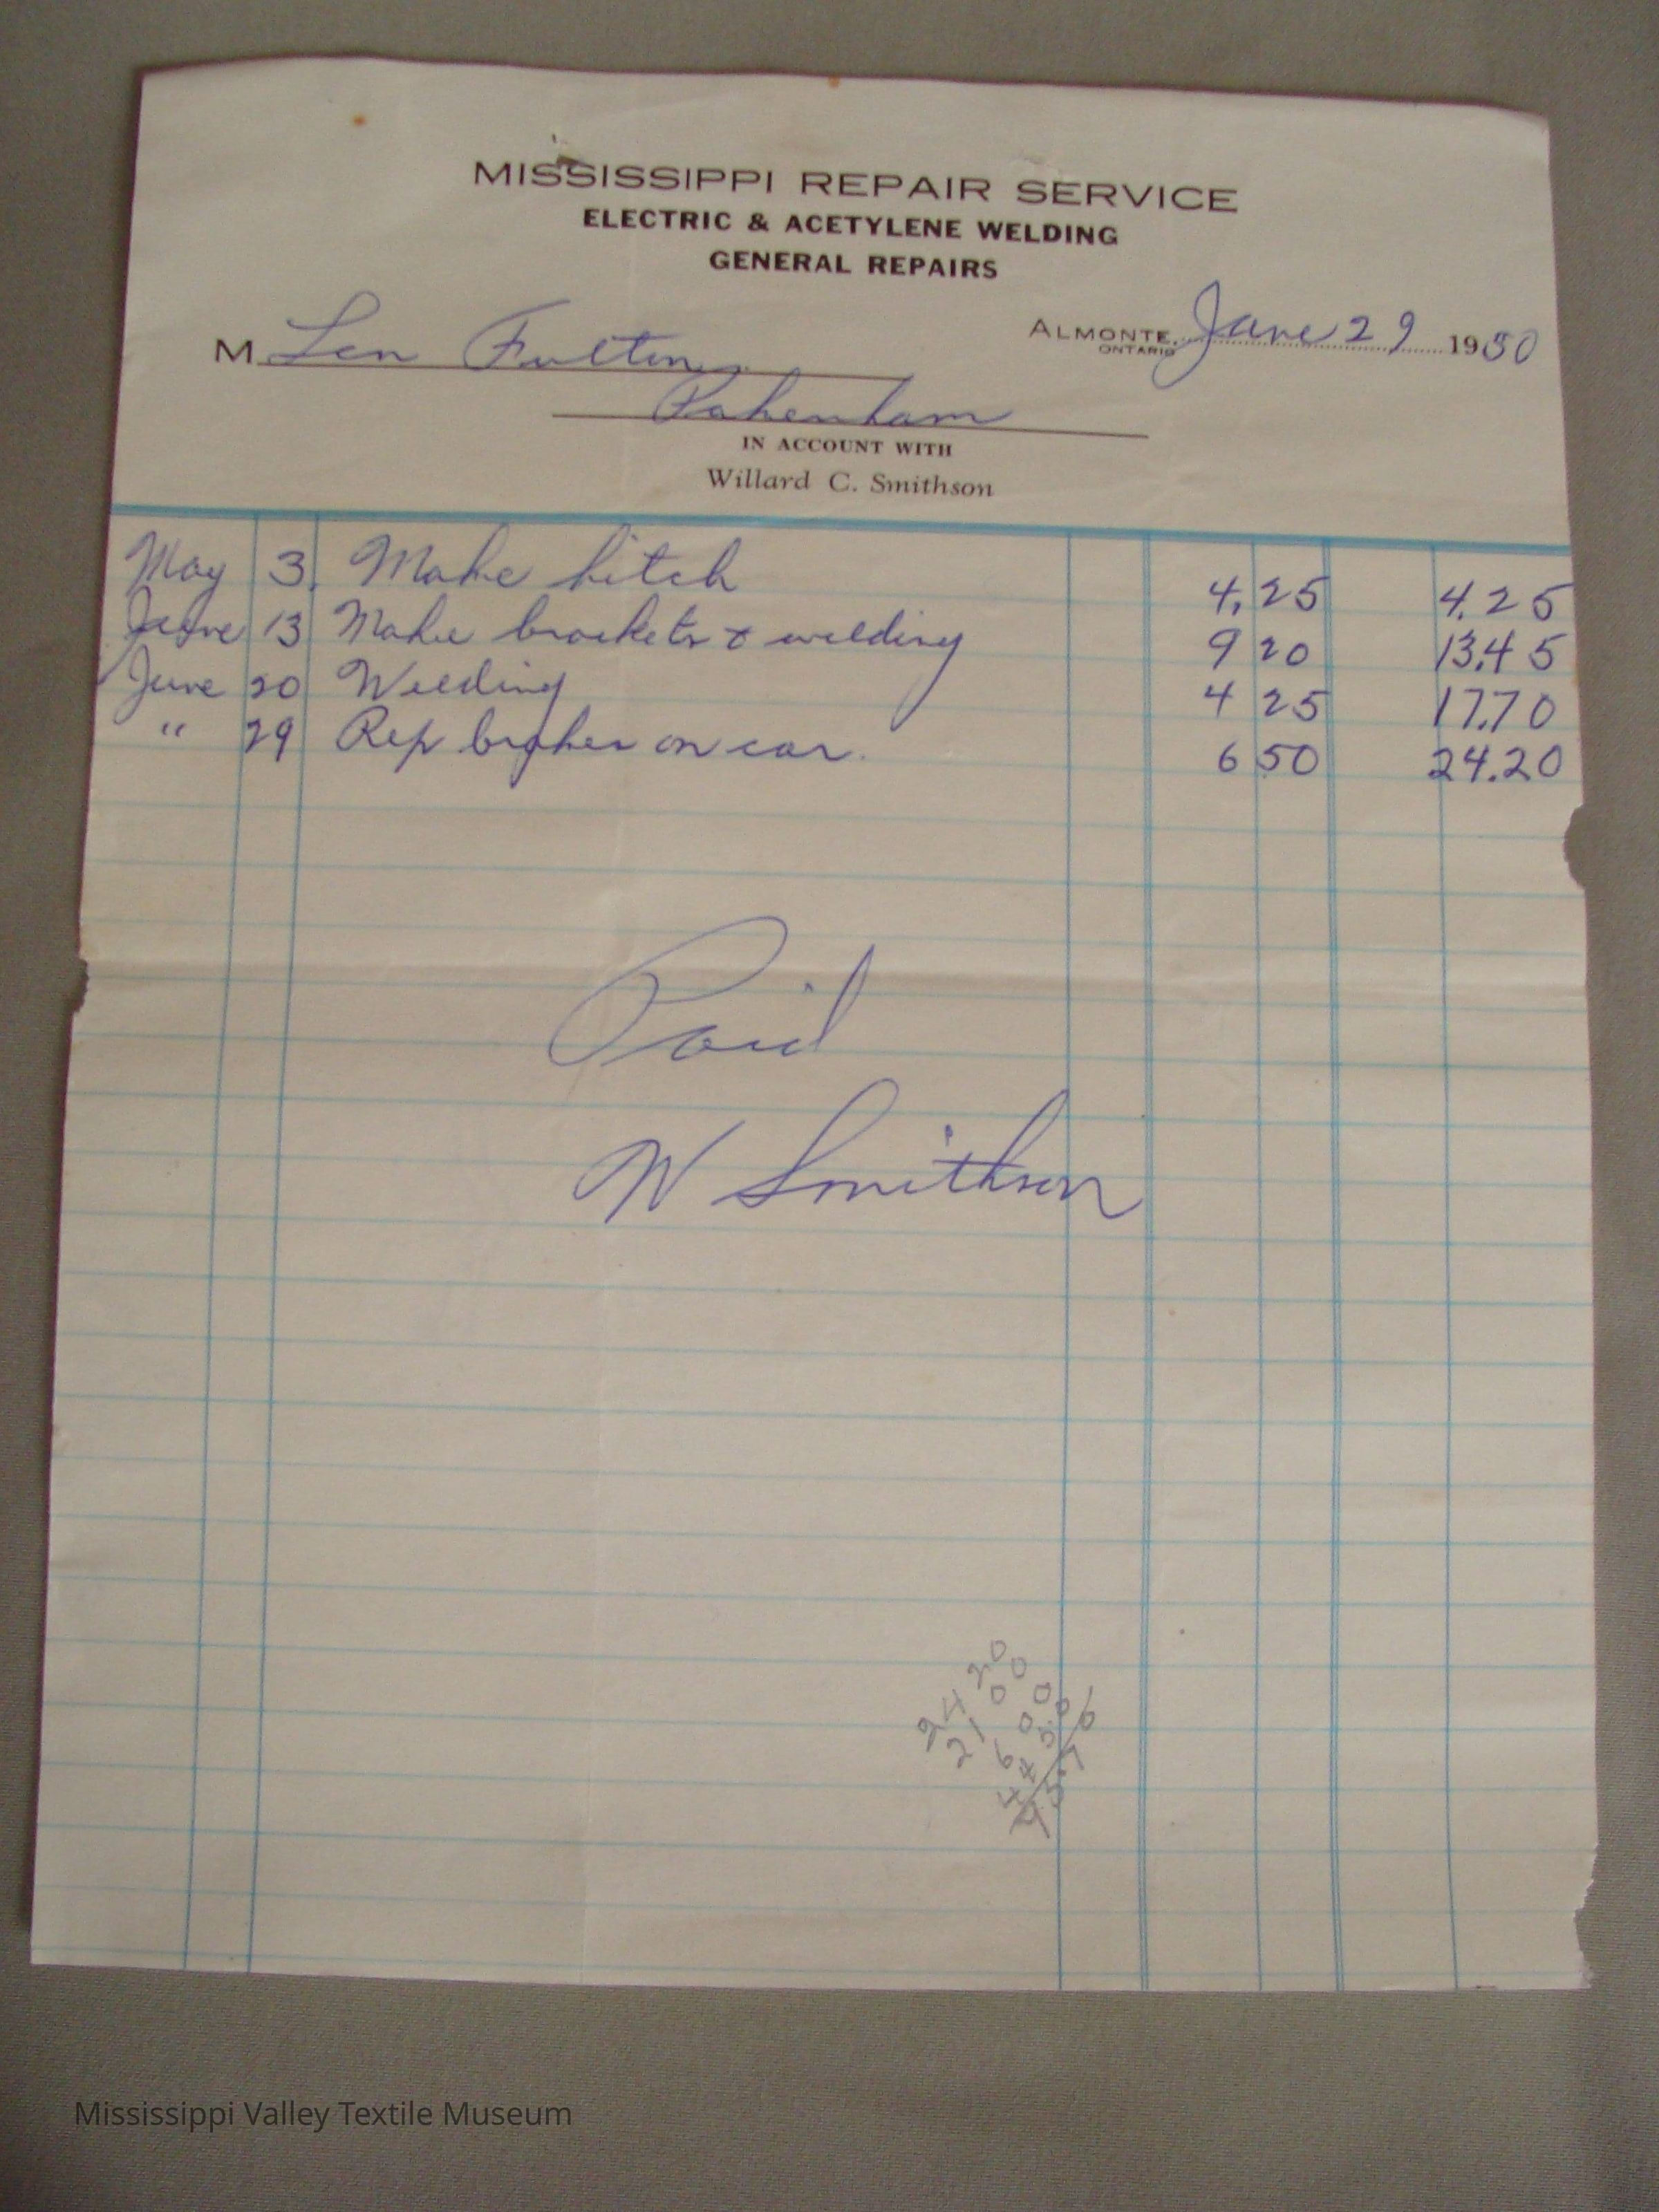 MISSISSIPPI REPAIR SERVICE
ELECTRIC & ACETYLENE WELDING
GENERAL REPAIRS
ALMONTE, ONTARIO June 29 1950
M Len Fulton
Pakenham
IN ACCOUNT WITH
Willard C. Smithson
May 3. Make hitch 4,25 4.25
June 13 Make brackets & welding 9 20 13.45
June 20 Welding 4 25 17.70
" 29 Rep brakes on car. 6 50 24.20
Paid
W Smithson
24 20
21 00
6 00
Mississippi Valley Textile Museum